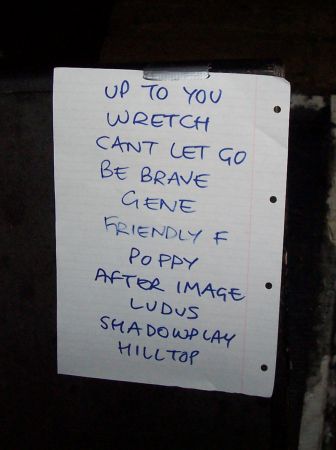 UP TO YOU
WRETCH
CANT LET GO
BE BRAVE
GENE
FRIENDLY F
POPPY
AFTER IMAGE
LUDUS
SHADOWPLAY
HILLTOP